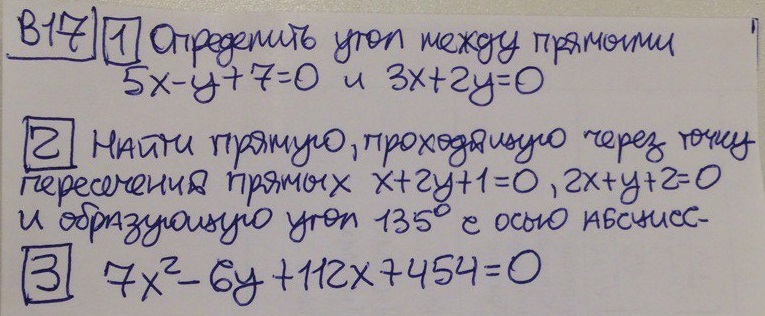 В17 1 Определить угол между прямыми
5x-y+7=0 и 3x+2y=0
2 Найти прямую, проходящую через точку
пересечения прямых x+2y+1=0, 2x+y+2=0
и образующую угол 135° с осью абсцисс.
3 7x²-6y+112x+454=0